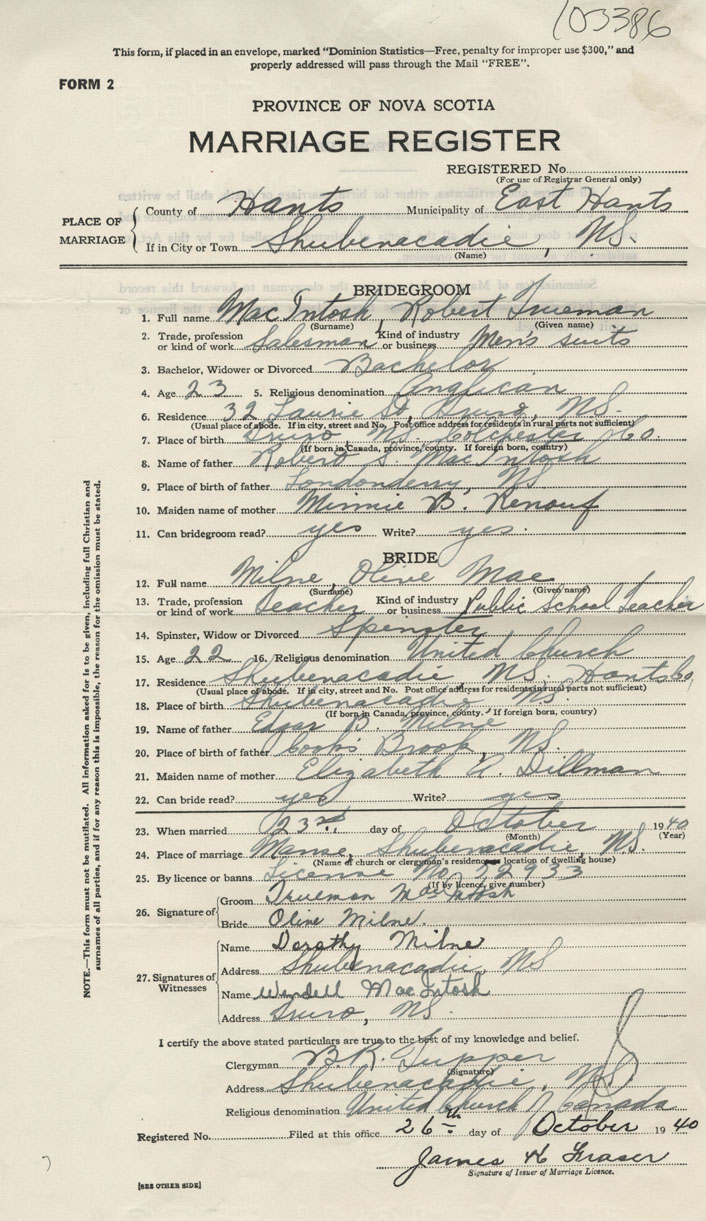 103386
This form, if placed in an envelope, marked "Dominion Statistics—Free, penalty for improper use $300," and
properly addressed will pass through the Mail "FREE".
FORM 2
PROVINCE OF NOVA SCOTIA
MARRIAGE REGISTER
REGISTERED No.
(For use of Registrar General only)
PLACE OF MARRIAGE
County of Hants Municipality of East Hants
If in City or Town Shubenacadie, NS.
(Name)
BRIDEGROOM
1. Full name MacIntosh, Robert Trueman
(Surname) (Given name)
2. Trade, profession or kind of work Salesman Kind of industry or business Men's suits
3. Bachelor, Widower or Divorced Bachelor
4. Age 23 5. Religious denomination Anglican
6. Residence 32 Laurie St, Truro, NS.
(Usual place of abode. If in city, street and No. Post office address for residents in rural parts not sufficient)
7. Place of birth Truro, NS. Colchester Co.
(If born in Canada, province, county. If foreign born, country)
8. Name of father Robert S. MacIntosh
9. Place of birth of father Londonderry, NS
10. Maiden name of mother Minnie B. Renouf
11. Can bridegroom read? yes Write? yes.
BRIDE
12. Full name Milne, Olive Mae
(Surname) (Given name)
13. Trade, profession or kind of work Teacher Kind of industry or business Public School Teacher
14. Spinster, Widow or Divorced Spinster
15. Age 22 16. Religious denomination United Church
17. Residence Shubenacadie NS. Hants Co,
(Usual place of abode. If in city, street and No. Post office address for residents in rural parts not sufficient)
18. Place of birth Shubenacadie NS.
(If born in Canada, province, county. If foreign born, country)
19. Name of father Edgar B. Milne
20. Place of birth of father Cooks Brook, NS.
21. Maiden name of mother Elizabeth A. Dillman
22. Can bride read? yes Write? yes
23. When married 23rd day of October 1940
(Month) (Year)
24. Place of marriage Manse, Shubenacadie, NS.
(Name of church or clergyman's residence location of dwelling house)
25. By licence or banns License No. 52933
(If by licence, give number)
26. Signature of
Groom Trueman MacIntosh
Bride Olive Milne.
27. Signatures of Witnesses
Name Dorothy Milne
Address Shubenacadie, NS
Name Wendell MacIntosh
Address Truro, NS.
I certify the above stated particulars are true to the best of my knowledge and belief.
Clergyman B.R. Tupper
(Signature)
Address Shubenacadie, NS
Religious denomination United Church of Canada
Registered No. Filed at this office 26th day of October 1940
James H Fraser
Signature of Issuer of Marriage Licence.
[SEE OTHER SIDE]
NOTE.—This form must not be mutilated. All information asked for is to be given, including full Christian and
surnames of all parties, and if for any reason this is impossible, the reason for the omission must be stated.